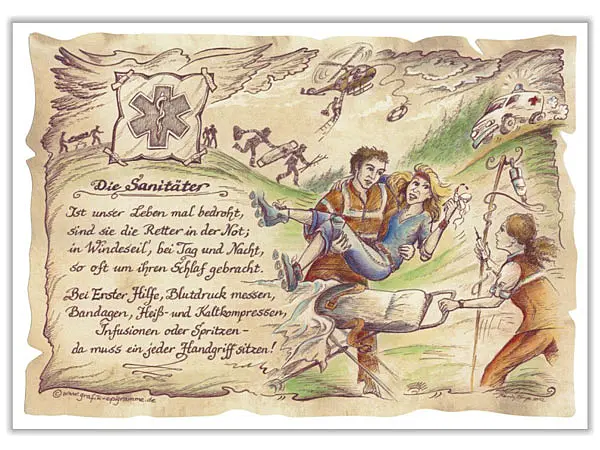 Die Sanitäter
Ist unser Leben mal bedroht,
sind sie die Retter in der Not;
in Windeseil, bei Tag und Nacht,
so oft um ihren Schlaf gebracht.
Bei Erster Hilfe, Blutdruck messen,
Bandagen, Heiß- und Kaltkompressen,
Infusionen oder Spritzen -
da muss ein jeder Handgriff sitzen!
©www.grafik-epigramme.de